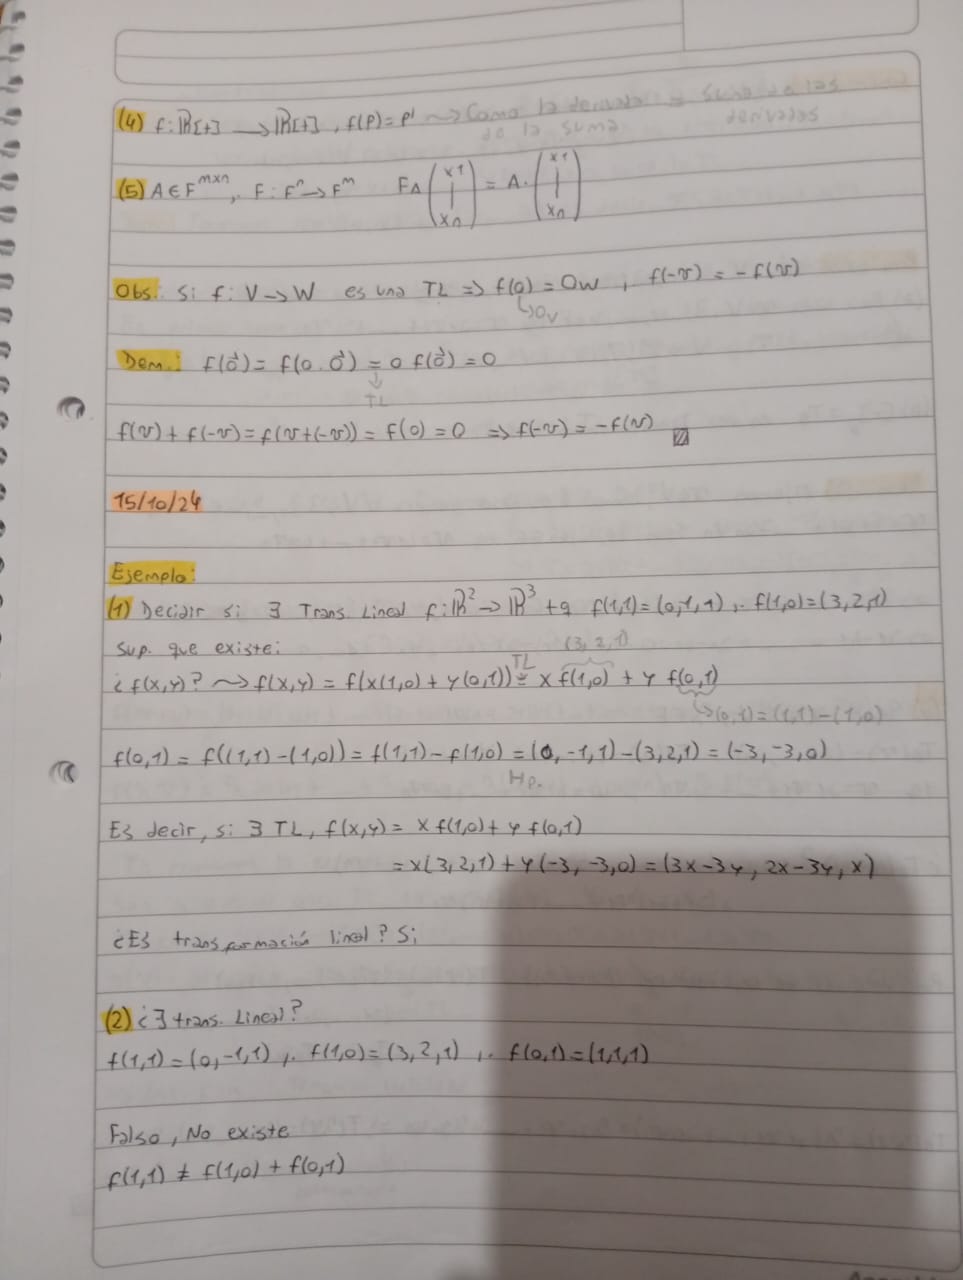 (4) f: ℝ[t] → ℝ[t], f(p) = p' ⤳ Como la derivada = suma de las
de la suma derivadas
(5) A ∈ F^{m×n} ,. F: Fⁿ → F^m FA (x1 | xn) = A. (x1 | xn)
Obs: Si f: V → W es una TL ⇒ f(0) = 0w , f(-v) = -f(v)
↳ 0v
Dem.: f(0⃗) = f(0.0⃗) = 0 f(0⃗) = 0
↓
TL
f(v) + f(-v) = f(v+(-v)) = f(0) = 0 ⇒ f(-v) = -f(v) ▨
15/10/24
Ejemplo:
(1) Decidir si ∃ Trans. Lineal f: ℝ² → ℝ³ tq f(1,1) = (0,-1,1) ,. f(1,0) = (3,2,1)
Sup. que existe: (3,2,1)
¿f(x,y)? ⤳ f(x,y) = f(x(1,0) + y(0,1)) TL= x f(1,0) + y f(0,1)
↳ (0,1) = (1,1) - (1,0)
f(0,1) = f((1,1) - (1,0)) = f(1,1) - f(1,0) = (0,-1,1) - (3,2,1) = (-3,-3,0)
Hp.
Es decir, si ∃ TL, f(x,y) = x f(1,0) + y f(0,1)
= x(3,2,1) + y(-3,-3,0) = (3x-3y, 2x-3y, x)
¿Es transformación lineal? Si
(2) ¿∃ trans. Lineal?
f(1,1) = (0,-1,1) ,. f(1,0) = (3,2,1) ,. f(0,1) = (1,1,1)
Falso, No existe
f(1,1) ≠ f(1,0) + f(0,1)